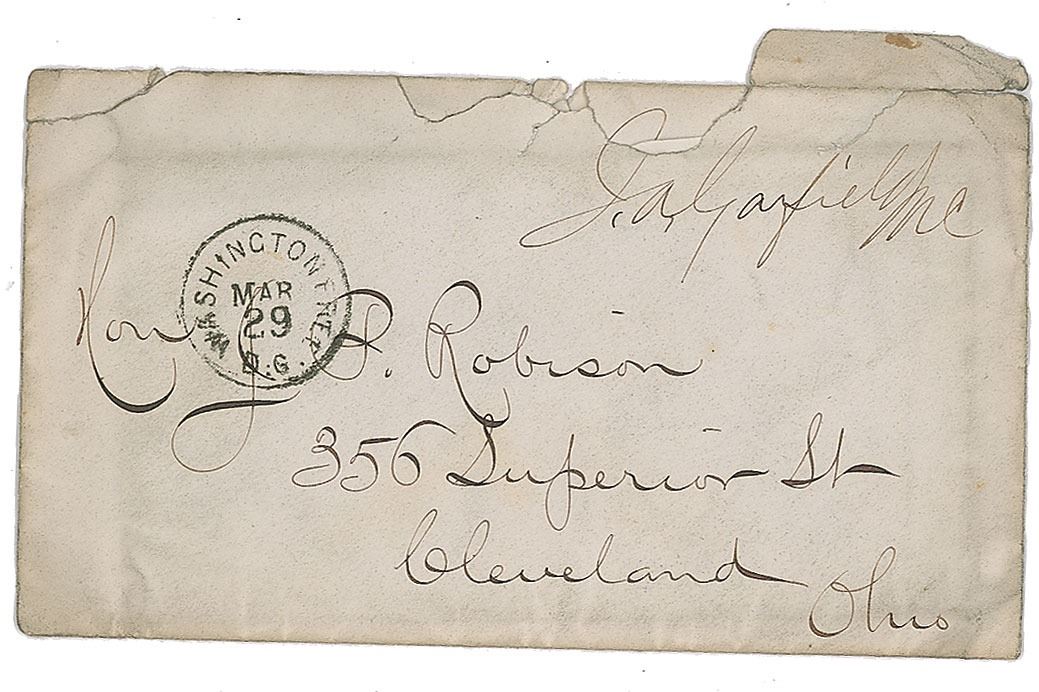 J. A. Garfield MC
WASHINGTON FREE
MAR
29
D.C.
Hon J. P. Robison
356 Superior St
Cleveland
Ohio